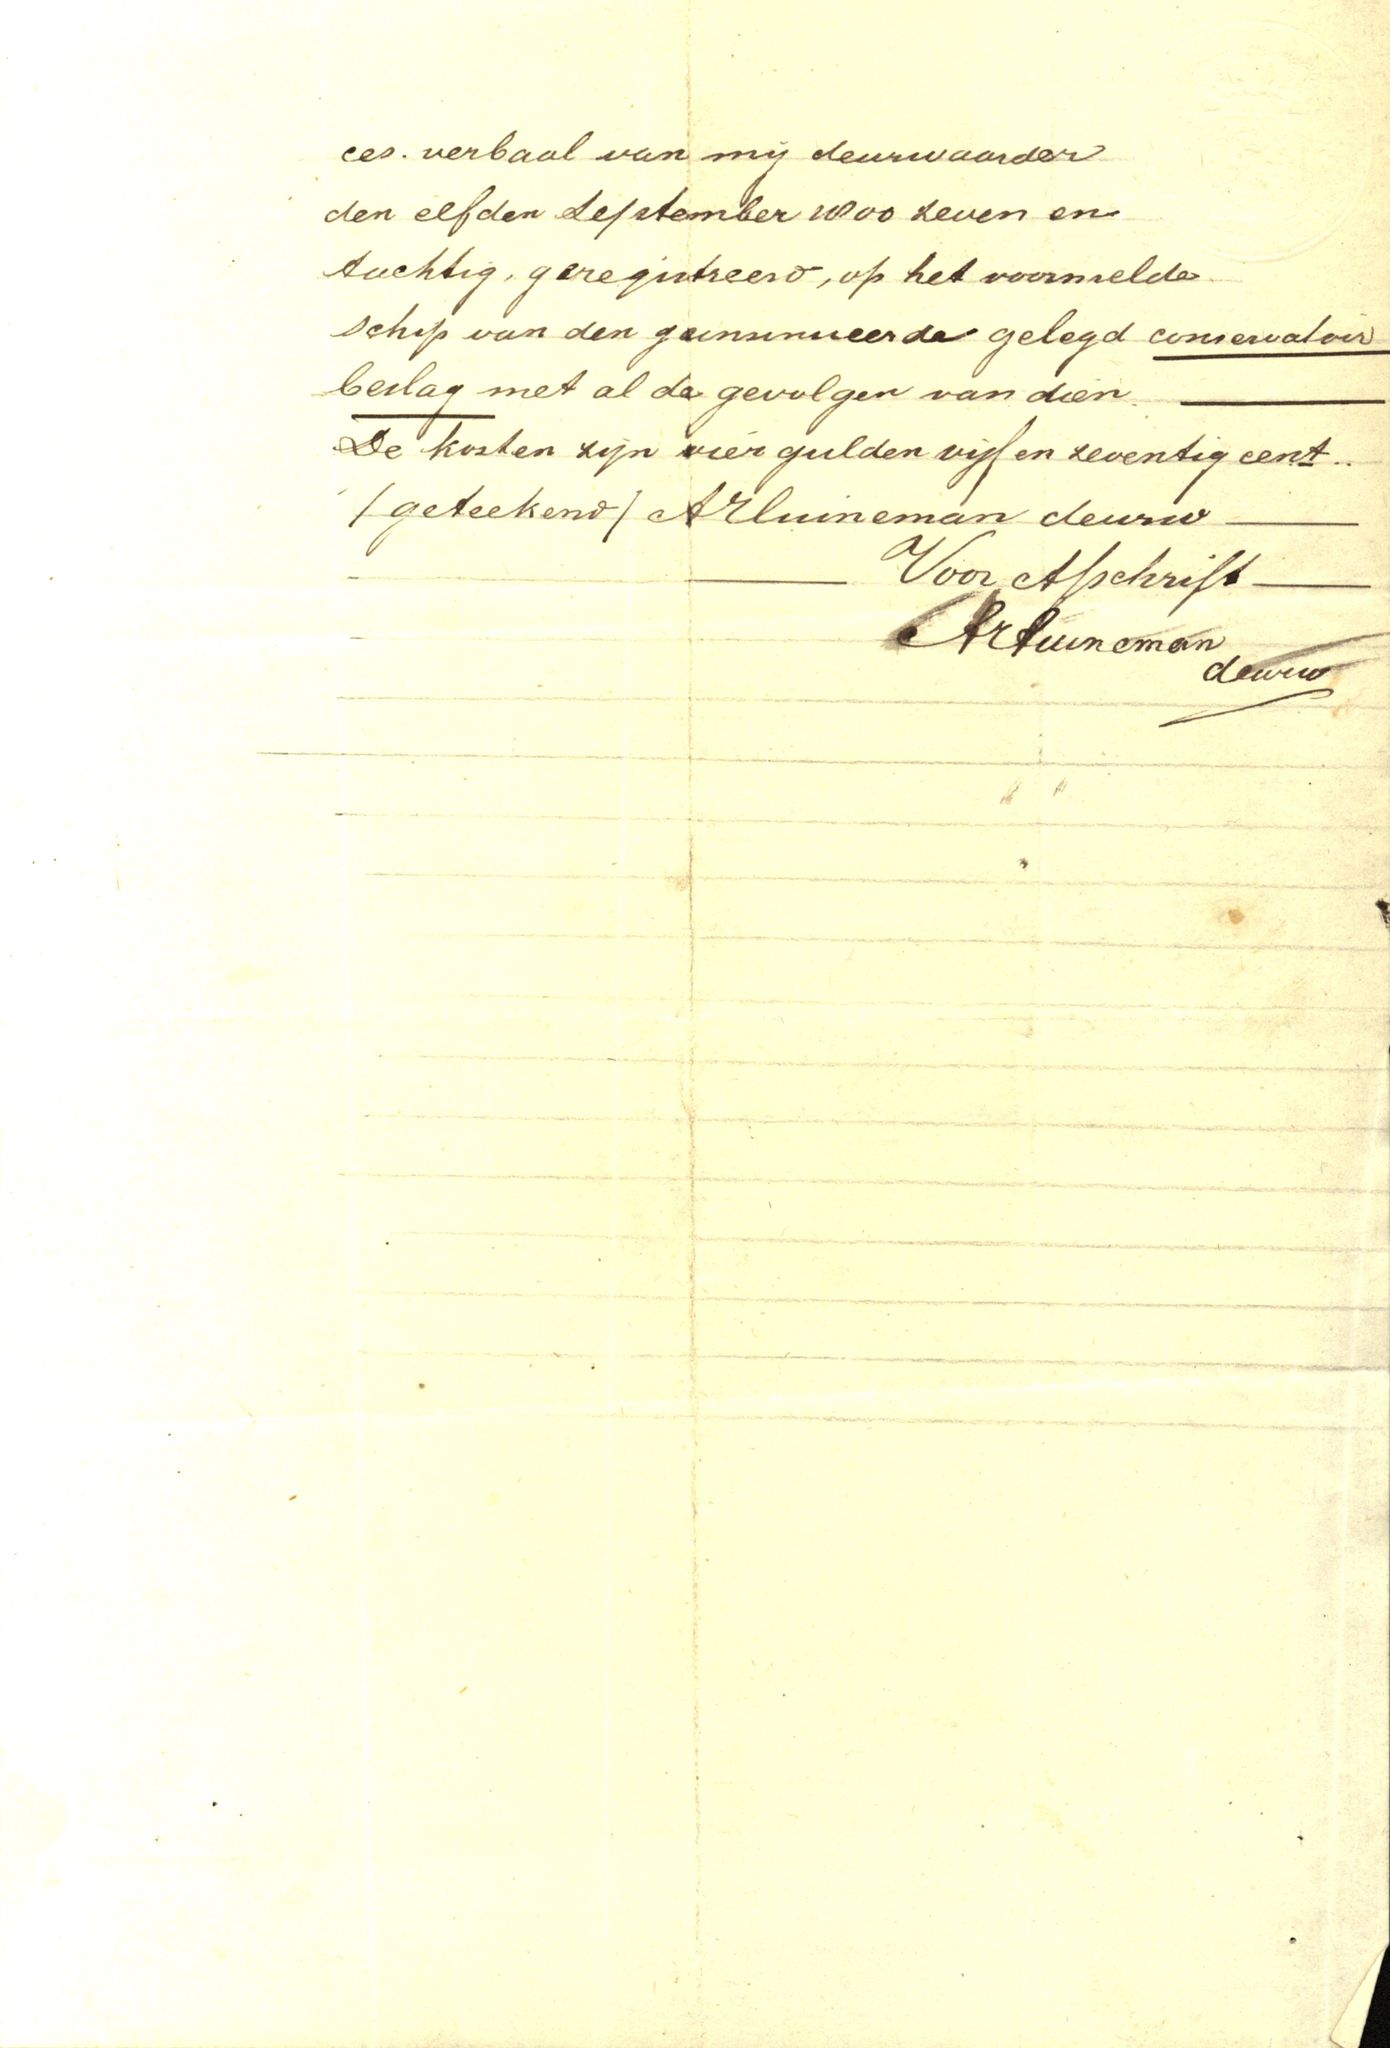 ces. verbaal van mij deurwaarder
den elfden September 1800 zeven en
tachtig, geregistreerd, op het voormelde
schip van den geinsinueerde gelegd conservatoir
beslag met al de gevolgen van dien.
De kosten zijn vier gulden vijf en zeventig cent.
/geteekend/ deurw
Voor Afschrift
deurw